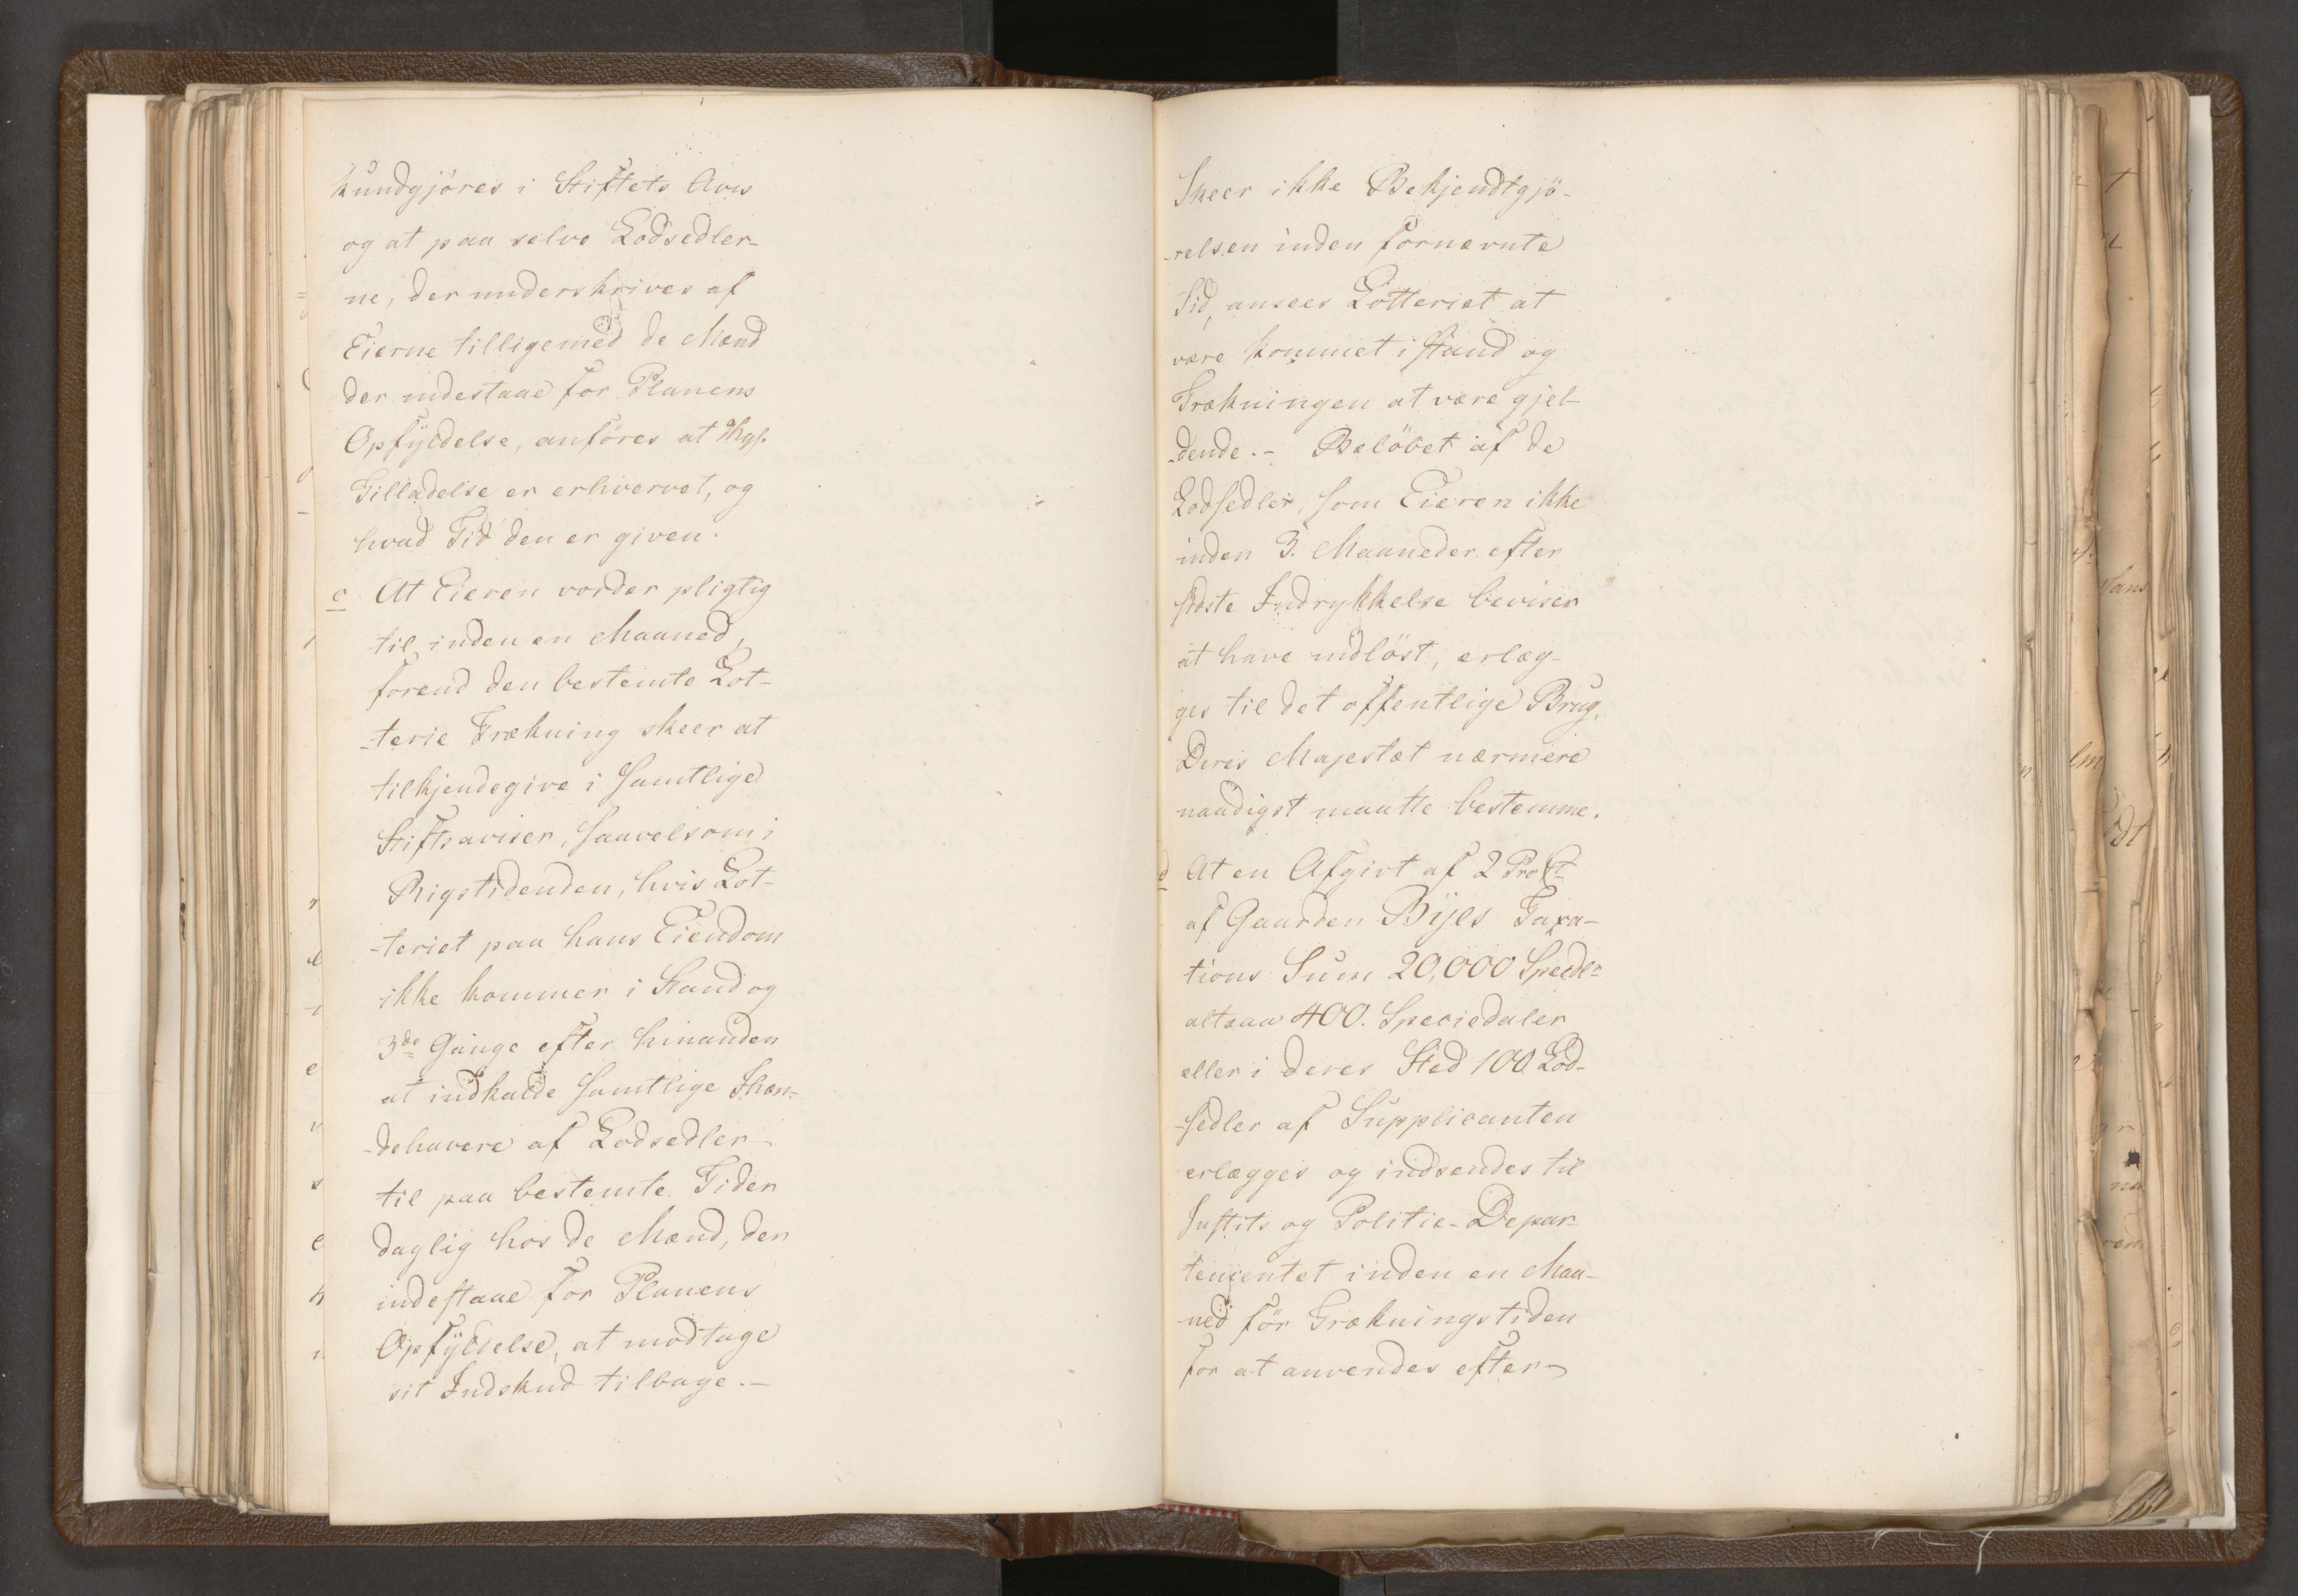 kundgjöres i Stiftets Avis
og at paa selve Lodsedler-
ne, der underskrives af
Eierne tilligemed de Mænd
der indestaae for Planens
Opfÿldelse, anföres at Kgs.
Tilladelse er erhvervet, og
hvad Tid den er given.
c At Eieren vorder pligtig
til inden en Maaned,
forend den bestemte Lot-
-terie Trækning skeer at
tilkjendegive i samtlige
Stiftsaviser, saavelsom i
Rigstidenden, hvis Lot-
-teriet paa hans Eiendom
ikke kommer i Stand og
3de Gange efter hinanden
at indkalde samtlige Ihæn-
-dehavere af Lodsedler
til paa bestemte Tider
daglig hos de Mænd, der
indestaae for Planens
Opfÿldelse, at modtage
sit Indskud tilbage.-
Skeer ikke Bekjendtgjö-
-relsen inden fornævnte
Tid, ansees Lotteriet at
være kommet i stand og
Trækningen at være gjel-
-dende.- Belöbet af de
Lodsedler, som Eieren ikke
inden 3. Maaneder efter
sidste Indrykkelse beviser
at have indlöst, erlæg-
ges til det offentlige Brug,
Deres Majestæt nærmere
naadigst maatte bestemme.
d At en Afgivt af 2 Pro Ct
af Gaarden Bÿes Taxa-
tions Sum 20,000 Specdlr
altsaa 400. Speciedaler
eller i deres Sted 100 Lod-
-sedler af Supplicanten
erlægges og indsendes til
Justits og Politie-Depar-
tementet inden en Maa-
-ned för Trækningstiden
for at anvendes efter